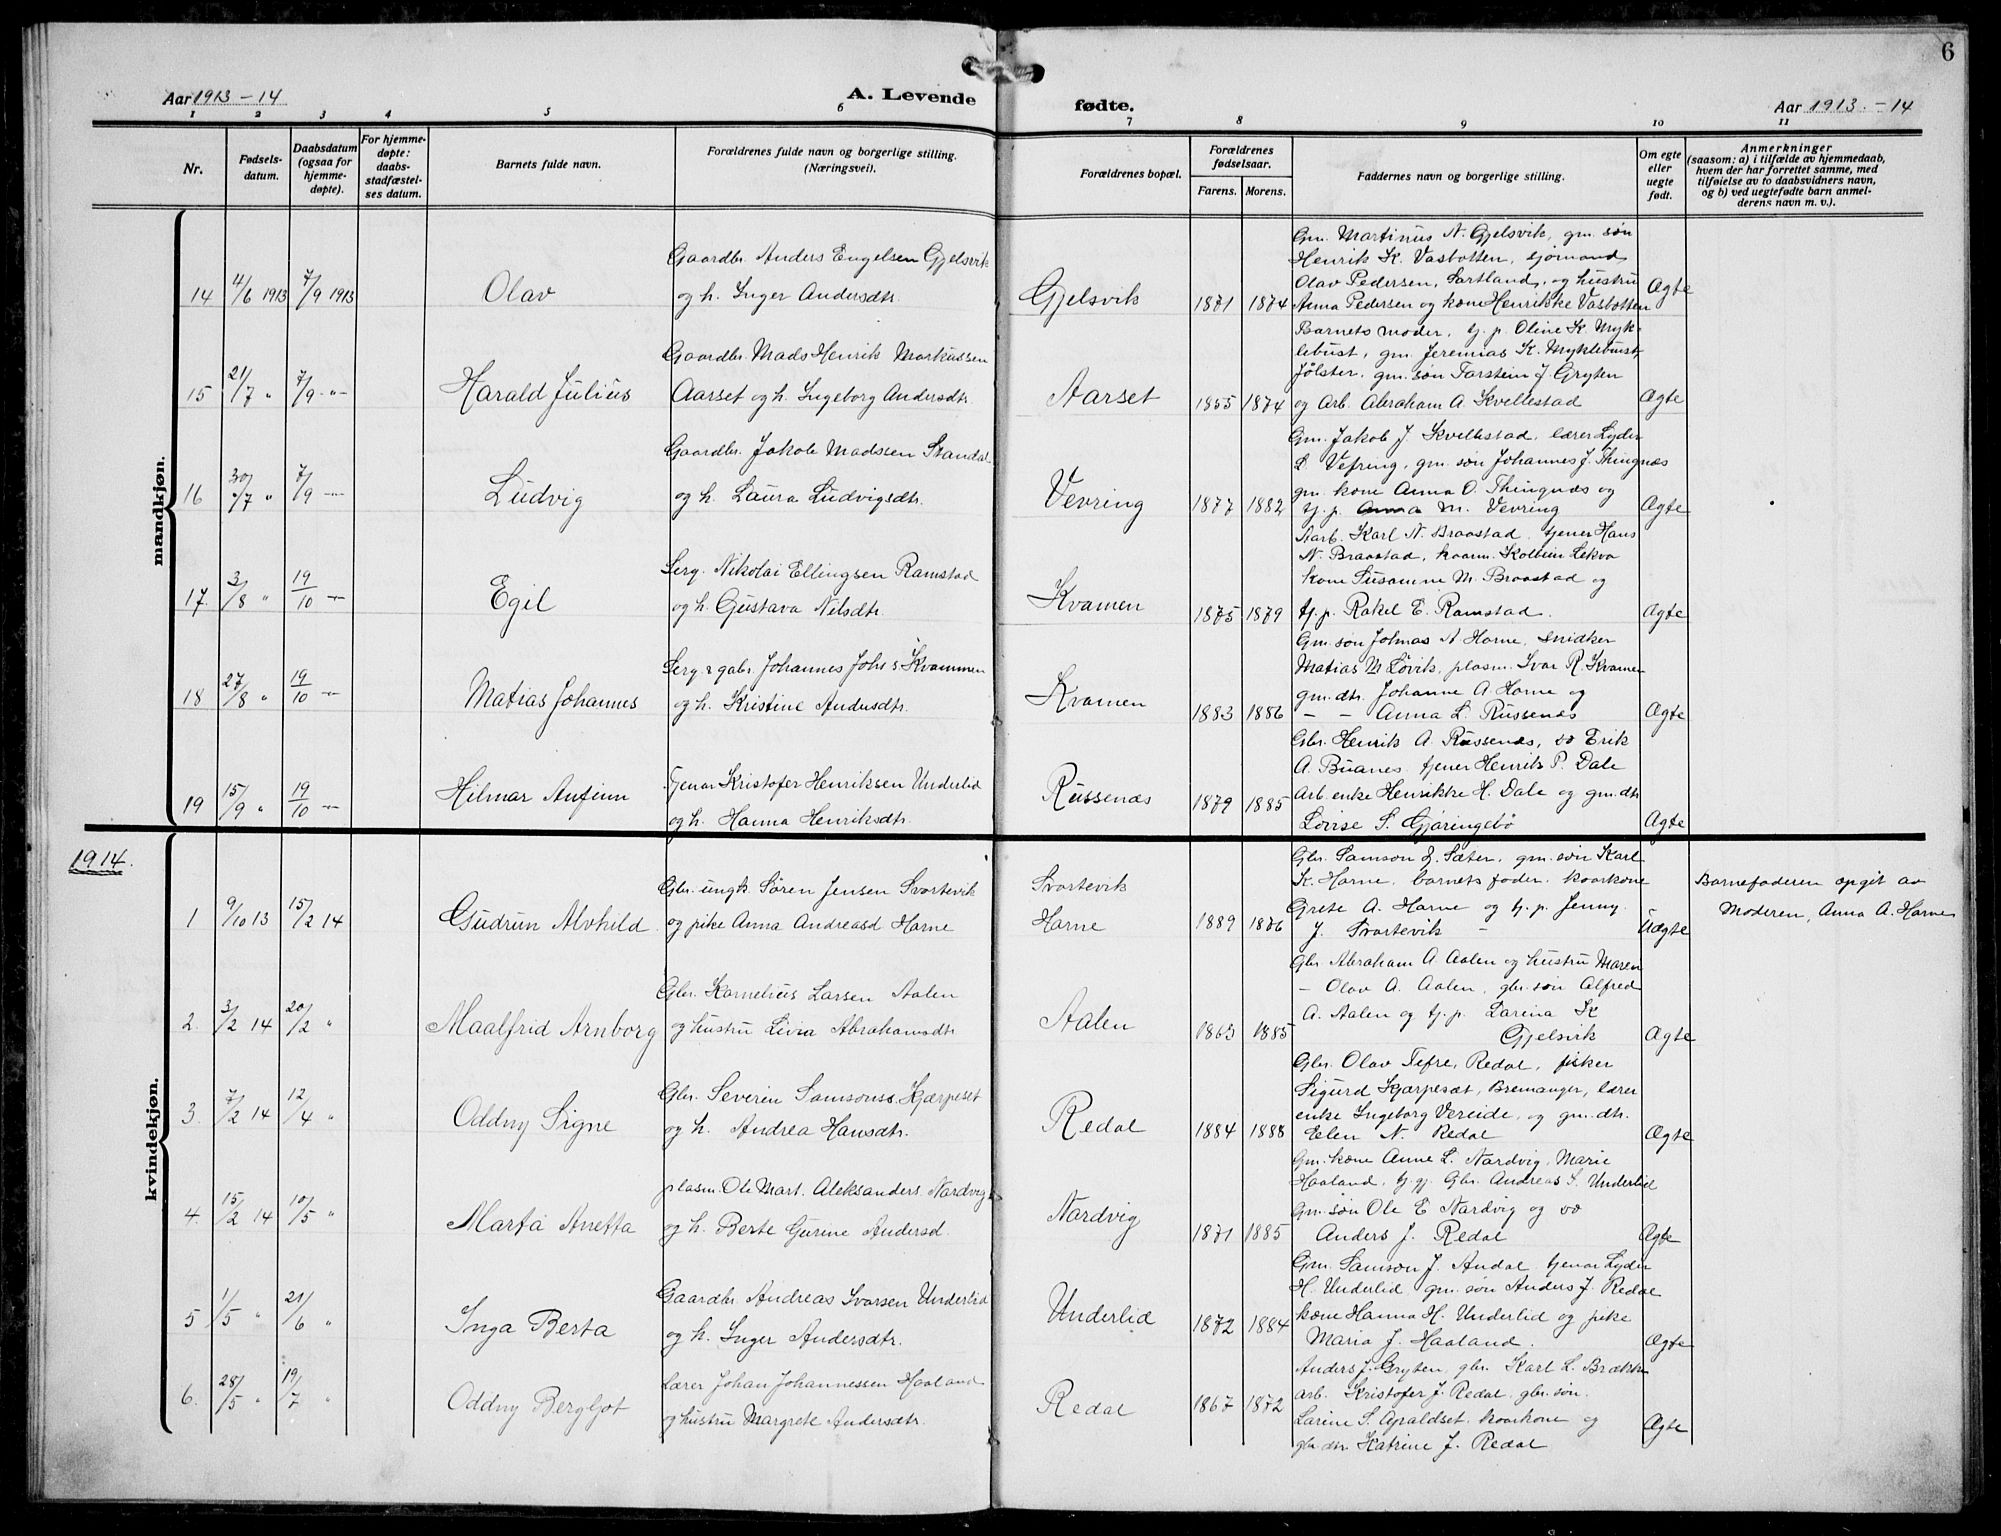 6
Aar 1913-14
A. Levende
fødte.
Aar 1913.-14
1 2 3 4 5 6 7 8 9 10 11
Nr.
Fødsels-
datum.
Daabsdatum
(ogsaa for
hjemme-
døpte).
For hjemme-
døpte:
daabs-
stadfæstel-
ses datum.
Barnets fulde navn.
Forældrenes fulde navn og borgerlige stilling.
(Næringsvei).
Forældrenes bopæl.
Forældrenes
fødselsaar.
Farens. Morens.
Faddernes navn og borgerlige stilling.
Om egte
eller
uegte
født.
Anmerkninger
(saasom: a) i tilfælde av hjemmedaab,
hvem der har forrettet samme, med
tilføielse av to daabsvidners navn,
og b) ved uegtefødte barn anmel-
derens navn m. v.).
mandkjøn.
14 4/6 1913 7/9 1913
Olav
Gaardbr. Anders Engelsen Gjelsvik
og h. Inger Andersdtr.
Gjelsvik
1871 1874
Gm. Martinus N. Gjelsvik, gm. søn
Henrik K. Vasbotten, sjømand
Olav Pedersen, Sartland, og hustru
Anna Pedersen og kone Henrikke Vasbotten
Ægte
15 21/7 " 7/9 -"-
Harald Julius
Gaardbr. Mads Henrik Markussen
Aarset og h. Ingeborg Andersdtr.
Aarset
1855 1874
Barnets moder, tj. p. Oline K. Myk-
lebust, gm. Jeremias K. Myklebust,
Jølster, gm. søn Torstein J. Gryten
og Arb. Abraham A. Kvellestad
Ægte
16 30/7 " 7/9 -"-
Ludvig
Gaardbr. Jakob Madssen Standal
og h. Laura Ludvigsdtr.
Vevring
1877 1882
Gm. Jakob J. Kvellestad, lærer Lyder
L. Vefring, gm. søn Johannes J. Thingnæs
gm. kone Anna O. Thingnæs og
tj. p. Anna M. Vevring
Ægte
17. 3/8 " 19/10 -"-
Egil
Serg. Nikolai Ellingsen Ramstad
og h. Gustava Nilsdtr.
Kvamen
1875 1879
Karl N. Braastad, tjener Hans
N. Braastad, Lekva
kone Susanne M. Braastad og
tj. p. Rakel E. Ramstad.
Ægte
18 27/8 " 19/10 -"-
Matias Johannes
Serg. & gbr. Johannes Joh s Kvammen
og h. Kristine Andersdtr.
Kvamen
1883 1886
Gm søn Johnas A Horne, snidker
Matias M Løvik, plasm. Ivar R. Kvamen
gm. dtr. Johanne A. Horne og
- - Anna L. Russenæs
Ægte
19 15/9 " 19/10 -"-
Hilmar Anfinn
Tjener Kristofer Henriksen Underlid
og h. Hanna Henriksdtr.
Russenæs
1879 1885
Gbr. Henrik A. Russenæs, do Erik
A. Buanes, tjener Henrik P. Dale
Arb enke Henrikke H. Dale og gm. dtr
Lovise S. Gjøringebø
Ægte
1914.
kvindekjøn.
1 9/10 13 15/2 14
Gudrun Alvhild
Gbr. ungk Søren Jensen Svortevik
og pike Anna Andreasd Horne
Svortevik
Horne
1889 1876
Gbr. Samson J. Sæter, gm. søn Karl
K. Horne, barnets fader, kaarkone
Grete A. Horne og tj. p. Jenny
J. Svortevik -
Uægte
Barnefaderen opgit av
Moderen, Anna A. Horne
2. 3/2 14 20/2 "
Maalfrid Arnborg
Gbr. Kornelius Larsen Aalen
og hustru Livia Abrahamsdtr
Aalen
1863 1885
Gbr Abraham A Aalen og hustru Maren
- Olav A. Aalen, gbr. søn Alfred
A. Aalen og tj. p. Larina K
Gjelsvik
Ægte
3. 7/2 14 12/4 "
Oddny Signe
Gbr. Severin Samsons. Kjærpeset
og h. Andrea Hansdtr.
Redal
1884 1888
Gbr. Olav Tefre, Redal, fisker
Sigurd Kjærpesæt, Bremanger, lærer
enke Ingeborg Vereide, og gm. dtr.
Elen N. Redal
Ægte
4. 15/2 14 10/5 "
Marta Anetta
plasm. Ole Mart. Aleksanders. Nardvig
og h. Berte Gurine Andersd.
Nardvig
1871 1885
Gm. kone Anne L. Nardvig, Marie
Haaland, Gbr. Andreas S. Underlid
Gm. søn Ole E Nardvig og do
Anders J. Redal
Ægte
5 1/5 " 21/6 "
Inga Berta
Gaardbr. Andreas Ivarsen Underlid
og h. Inger Andersdtr.
Underlid
1872 1884
Gm. Samson J. Andal, tjener Lyder
H. Underlid gm. søn Anders J. Redal
kone Hanna H. Underlid og pike
Maria J. Haaland.
Ægte
6. 28/5 " 19/7 "
Oddny Bergljot
Lærer Johan Johannessen Haaland
og hustru Margrete Andersdtr.
Redal
1867 1872
Anders J. Gryten, gbr. Karl L. Brækken
arb. Kristofer J. Redal, gbr. søn.
Larine S. Apaldset, kaarkone og
gbr dtr. Katrine J. Redal
Ægte